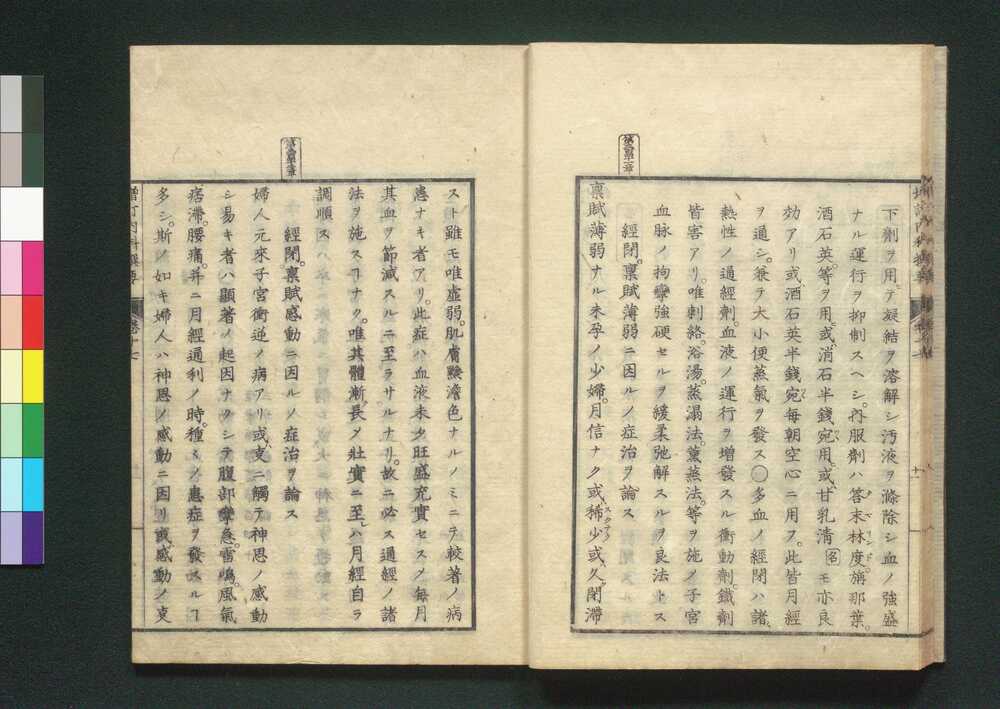 下劑ヲ用テ凝結ヲ溶解シ汚液ヲ滌除シ血ノ強盛
ナル運行ヲ抑制スヘシ。内服劑ハ答末林度。旃那葉。
酒石英。等ヲ用。或消石半錢宛用。或甘乳清名モ亦良
効アリ或酒石英半錢宛毎朝空心ニ用フ。此皆月經
ヲ通シ。兼テ大小便蒸氣ヲ發ス〇多血ノ經閉ハ諸
熱性ノ通經劑。血液ノ運行ヲ増發スル衝動劑。鐵劑
皆害アリ。唯刺絡。浴湯。蒸溻法。薫蒸法。等ヲ施ノ子宮
血脉ノ拘攣強硬セルヲ緩柔弛解スルヲ良法トス
經閉。禀賦薄弱ニ因ルノ症治ヲ論ス
禀賦薄弱ナル未孕ノ少婦。月信ナク或稀少或久閉滯
スト雖モ唯虚弱。肌膚黲澹色ナルノミニテ較著ノ病
患ナキ者アリ。此症ハ血液未タ旺盛充實セスメ毎月
其血ヲ節減スルニ至ラサルナリ。故ニ必ス通經ノ諸
法ヲ施スヿナク。唯其體漸長メ壯實ニ至レハ月經自ラ
調順ス
經閉。禀賦感動ニ因ルノ症治ヲ論ス
婦人元來子宮衝逆ノ病アリ或支ニ觸テ神思ノ感動
シ易キ者ハ顯著ノ起因ナクシテ腹部攣急。雷鳴。風氣
痞滯。腰痛。并ニ月經通利ノ時。種々ノ患症ヲ發スルヿ
多シ。斯ノ如キ婦人ハ神思ノ感動ニ因リ或感動ノ支